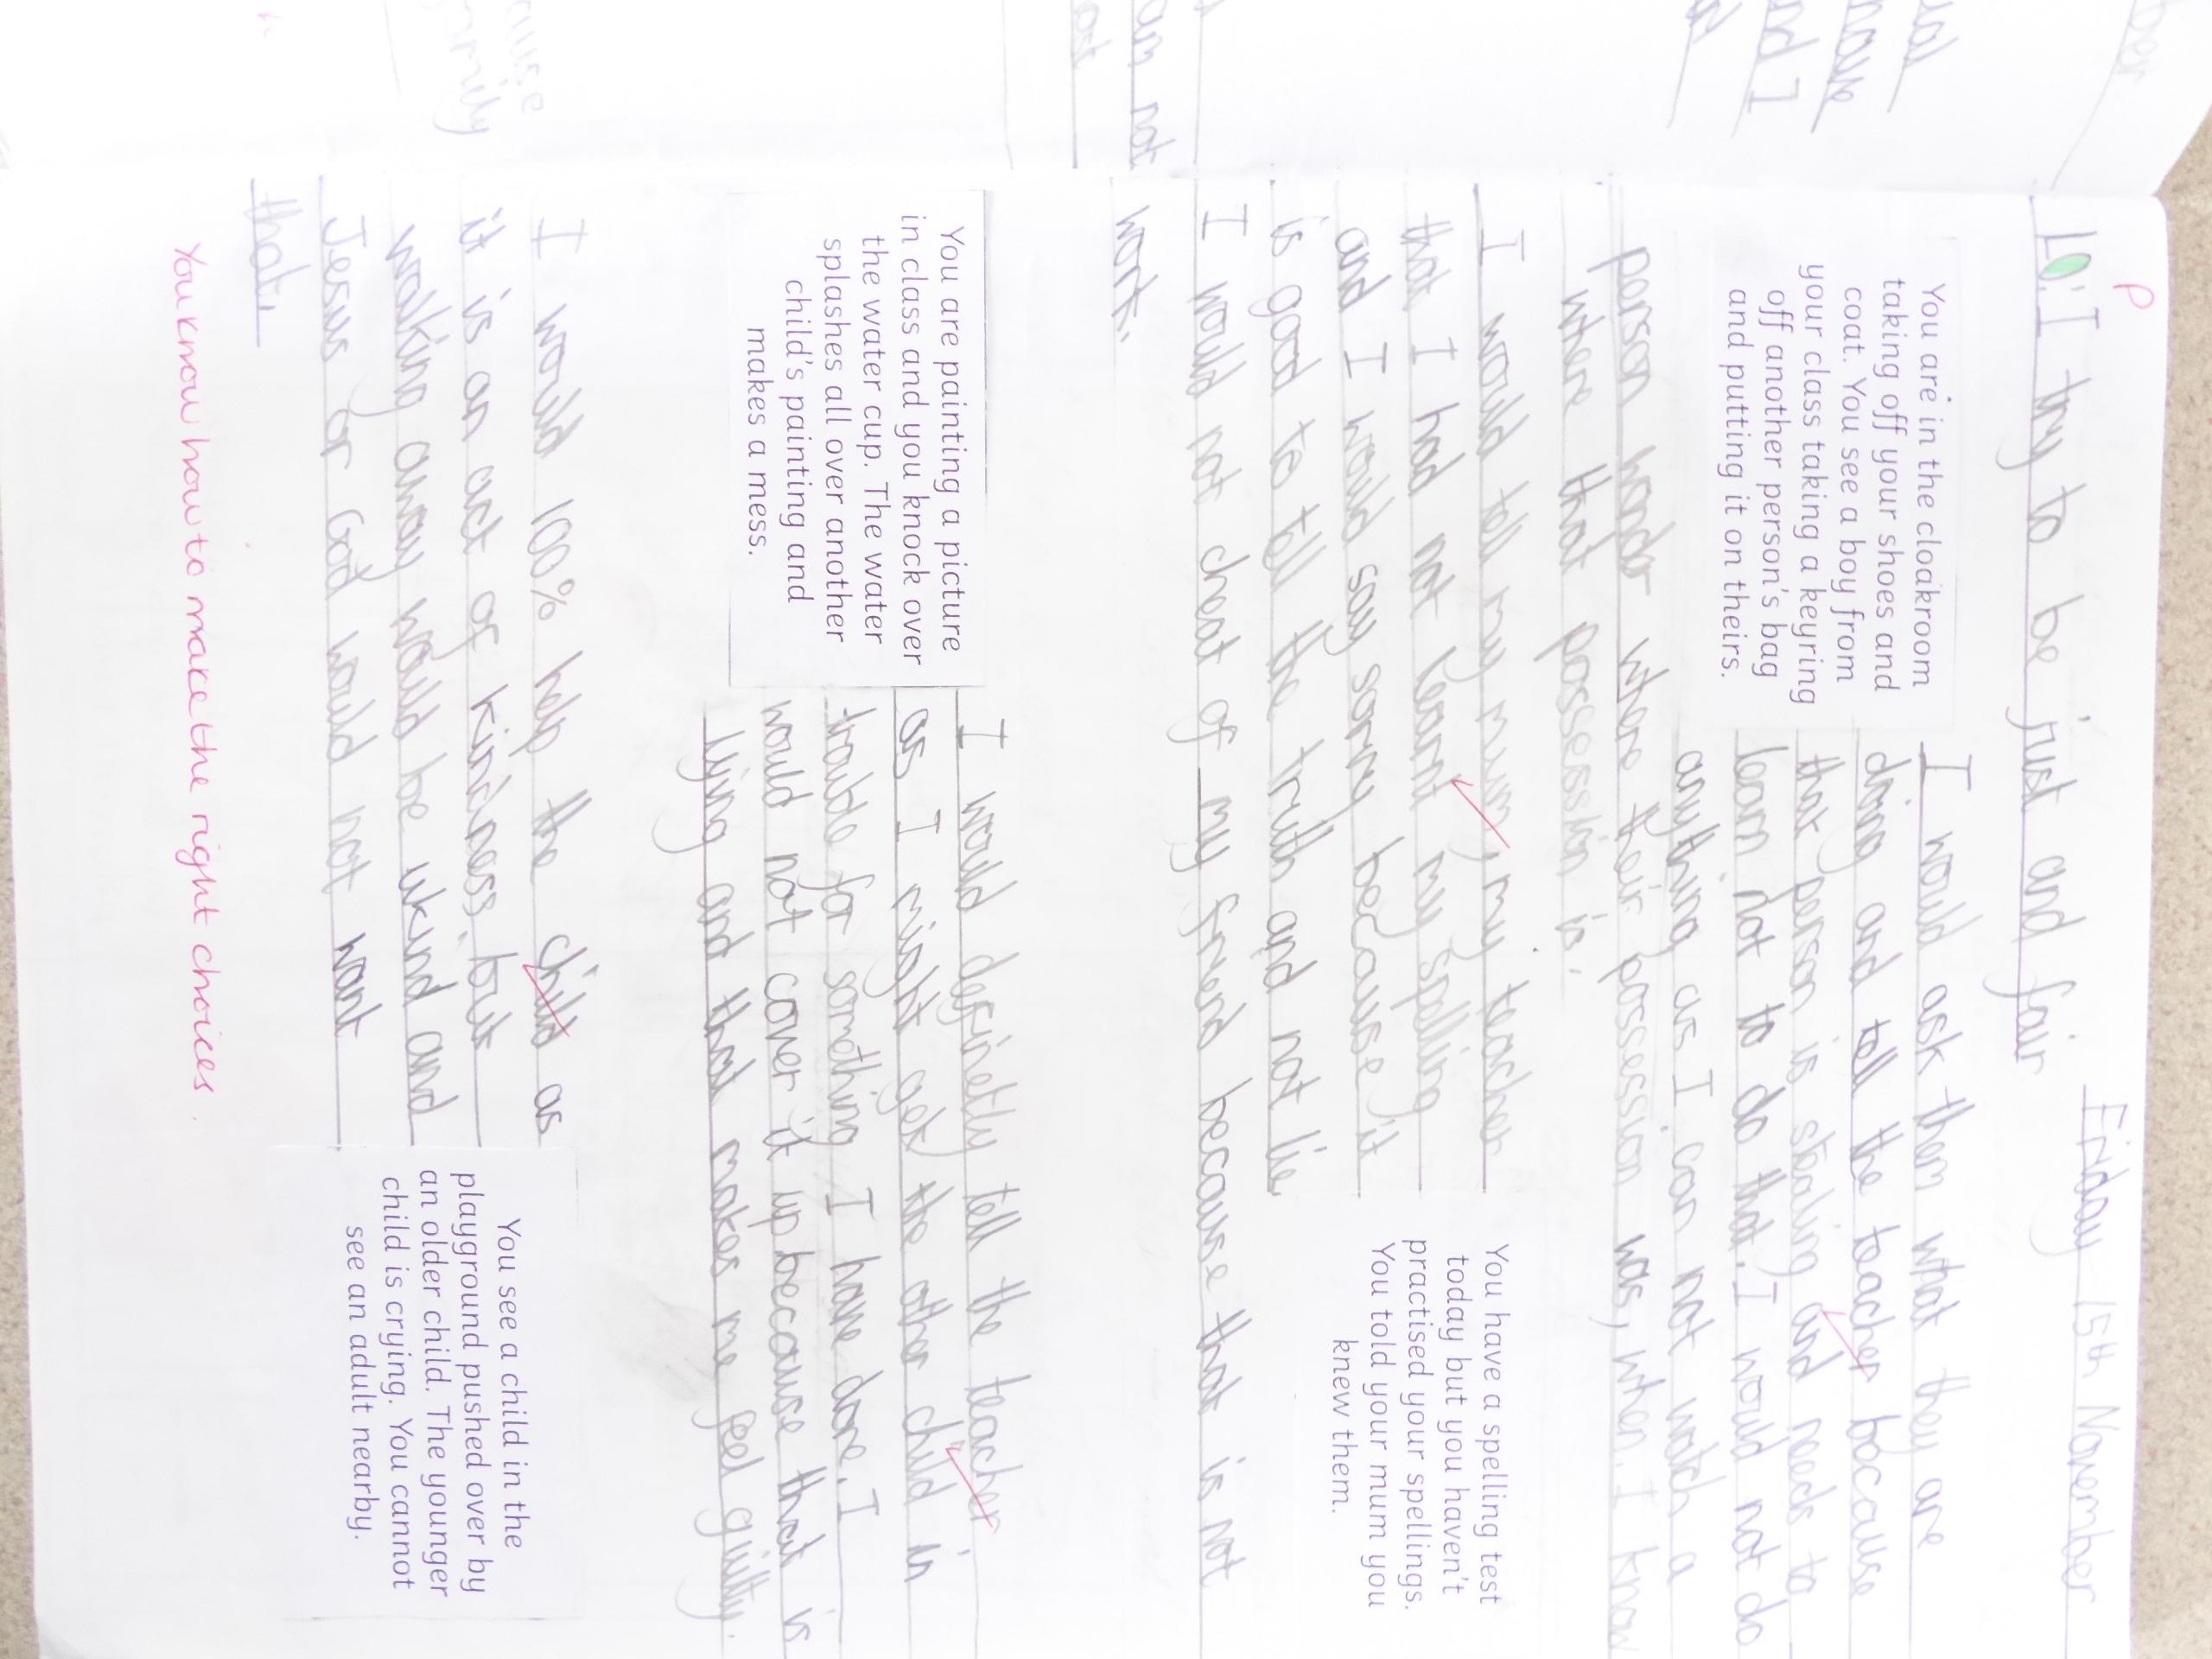 Friday 15th November
P
LO: I try to be just and fair
You are in the cloakroom
taking off your shoes and
coat. You see a boy from
your class taking a keyring
off another person's bag
and putting it on theirs.
I would ask them what they are
doing and tell the teacher because
that person is stealing and needs to
learn not to do that. I would not do
anything as I can not watch a
person wonder where their possession was, when I know
where that possession is.
I would tell my mum, my teacher
that I had not learnt my spelling
and I would say sorry because it
is good to tell the truth and not lie.
I would not cheat of my friend because that is not
work.
You have a spelling test
today but you haven't
practised your spellings.
You told your mum you
knew them.
You are painting a picture
in class and you knock over
the water cup. The water
splashes all over another
child's painting and
makes a mess.
I would definetly tell the teacher
as I might get the other child in
trouble for something I have done. I
would not cover it up because that is
lying and that makes me feel guilty.
I would 100% help the child as
it is an act of kindness, but
walking away would be ukind and
Jesus or God would not want
that.
You see a child in the
playground pushed over by
an older child. The younger
child is crying. You cannot
see an adult nearby.
You know how to make the right choices.